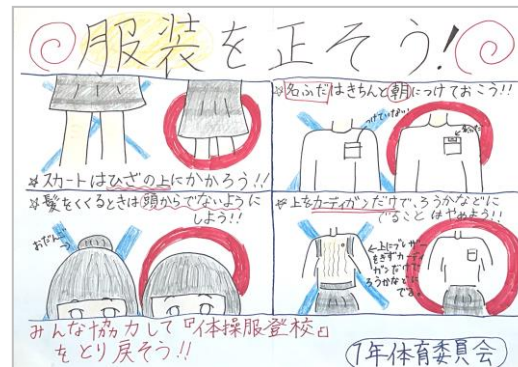 服装を正そう!
☆スカートはひざの上にかかろう!!
☆名ふだはきちんと朝につけておこう!!
つけていない
名ふだ
☆髪をくくるときは頭からでないよう
にしよう!!
おだんご
☆上をカーディガンだけで、ろうかなどに
でることはやめよう!!
←上にブレザー
をきずカーディ
ガンだけで
ろうかなどに
でる。
みんな協力して『体操服登校』
をとり戻そう!!
7年体育委員会